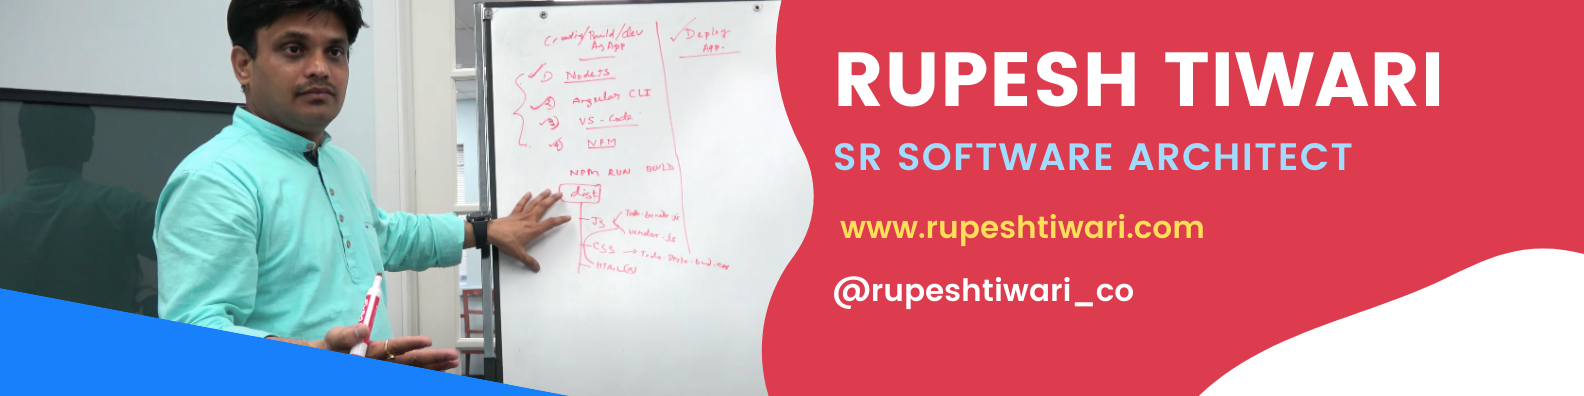 Creating/Build/dev
Ng App
✓ Deploy
App.
✓ 1) NodeJS
✓ 2) Angular CLI
✓ 3) VS-Code
✓ 4) NPM
NPM RUN BUILD
dist
JS
vendor.js
CSS
HTML
RUPESH TIWARI
SR SOFTWARE ARCHITECT
www.rupeshtiwari.com
@rupeshtiwari_co